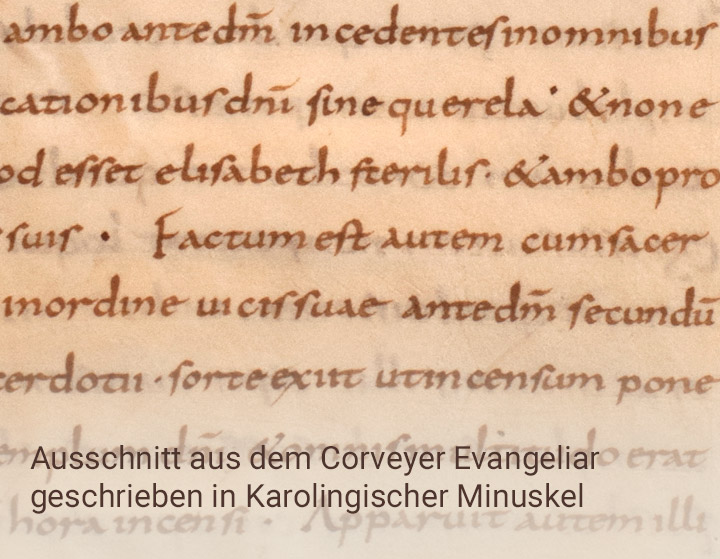 ambo antedm̄ incedentesinomnibus
cationibusdnī sine querela· &none
od esset elisabeth sterilis· &ambopro
suis · Factum est autem cumsacer
inordine uicissuae antedm̄ secundū
cerdotii · sorte exiit utincensum pone
dnī erat
Ausschnitt aus dem Corveyer Evangeliar
geschrieben in Karolingischer Minuskel
hora incensi · Apparuit autem illi